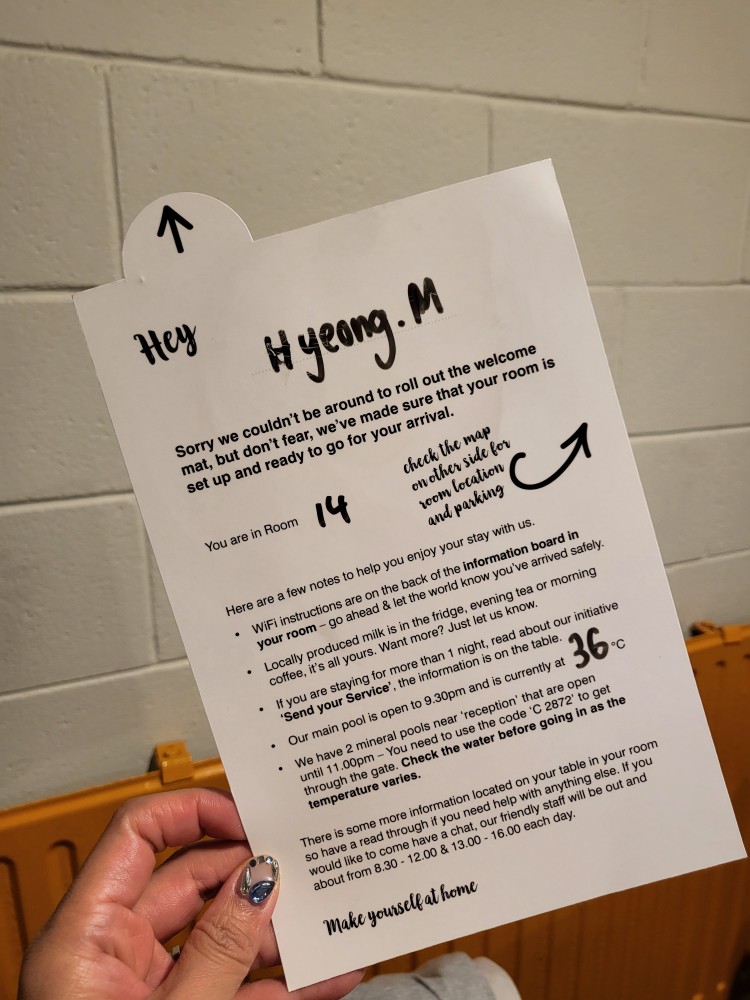 Hey Hyeong.M
Sorry we couldn't be around to roll out the welcome
mat, but don't fear, we've made sure that your room is
set up and ready to go for your arrival.
check the map
on other side for
room location
and parking
You are in Room 14
Here are a few notes to help you enjoy your stay with us.
• WiFi instructions are on the back of the information board in
your room – go ahead & let the world know you've arrived safely.
• Locally produced milk is in the fridge, evening tea or morning
coffee, it's all yours. Want more? Just let us know.
• If you are staying for more than 1 night, read about our initiative
'Send your Service', the information is on the table.
• Our main pool is open to 9.30pm and is currently at 36 °C
• We have 2 mineral pools near 'reception' that are open
until 11.00pm – You need to use the code 'C 2872' to get
through the gate. Check the water before going in as the
temperature varies.
There is some more information located on your table in your room
so have a read through if you need help with anything else. If you
would like to come have a chat, our friendly staff will be out and
about from 8.30 - 12.00 & 13.00 - 16.00 each day.
Make yourself at home